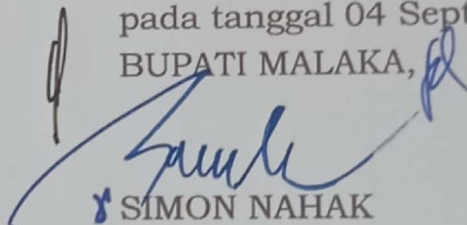 pada tanggal 04 Sept
BUPATI MALAKA,
SIMON NAHAK